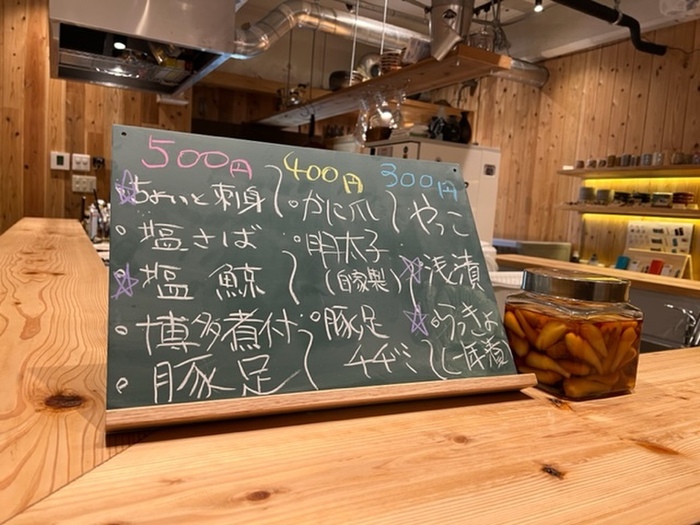 500円
ちょいと刺身
塩さば
塩鯨
博多煮付
豚足
400円
かに爪
明太子
(自家製)
豚足
チヂミ
300円
やっこ
浅漬
らっきょ